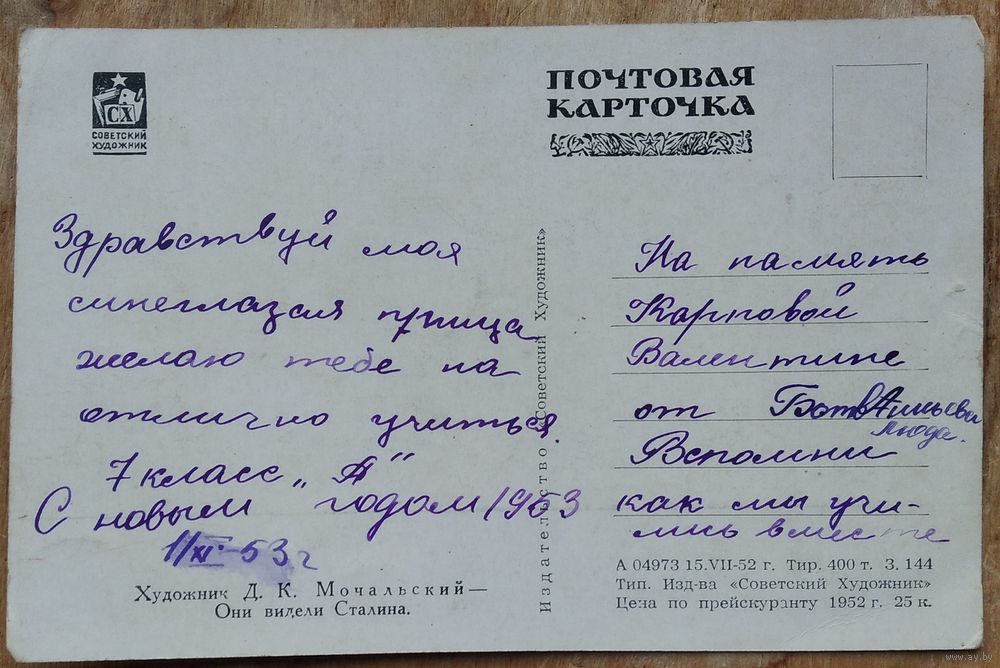 СХ
СОВЕТСКИЙ
ХУДОЖНИК
ПОЧТОВАЯ
КАРТОЧКА
Здравствуй моя
синеглазая птица
желаю тебе на
отлично учиться
7 класс „А“
С новым годом 1953
11/XI-53 г
Художник Д. К. Мочальский—
Они видели Сталина.
Издательство «Советский Художник»
На память
Карповой
Валентине
от
Люда.
Вспомни
как мы учи-
лись вместе
А 04973 15.VII-52 г. Тир. 400 т. З. 144
Тип. Изд-ва «Советский Художник»
Цена по прейскуранту 1952 г. 25 к.
www.ay.by